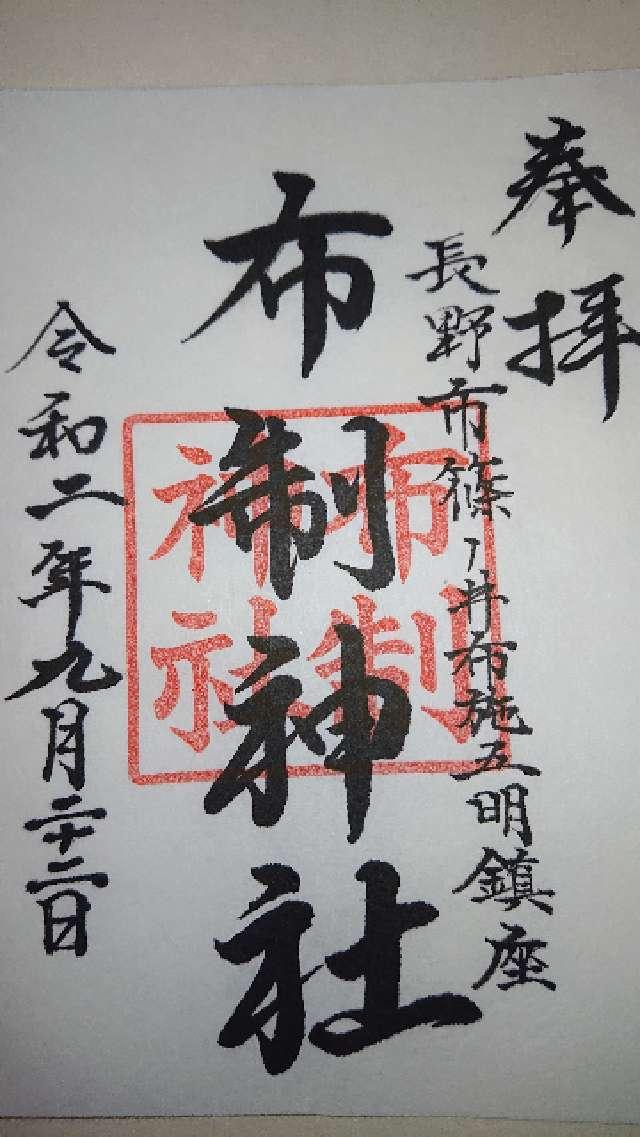 奉拝
長野市篠ノ井布施五明鎮座
布制神社
布制神社
令和二年九月二十二日